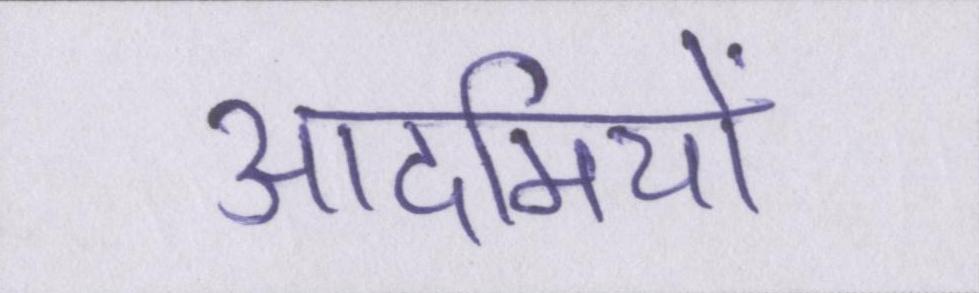 आदमियों